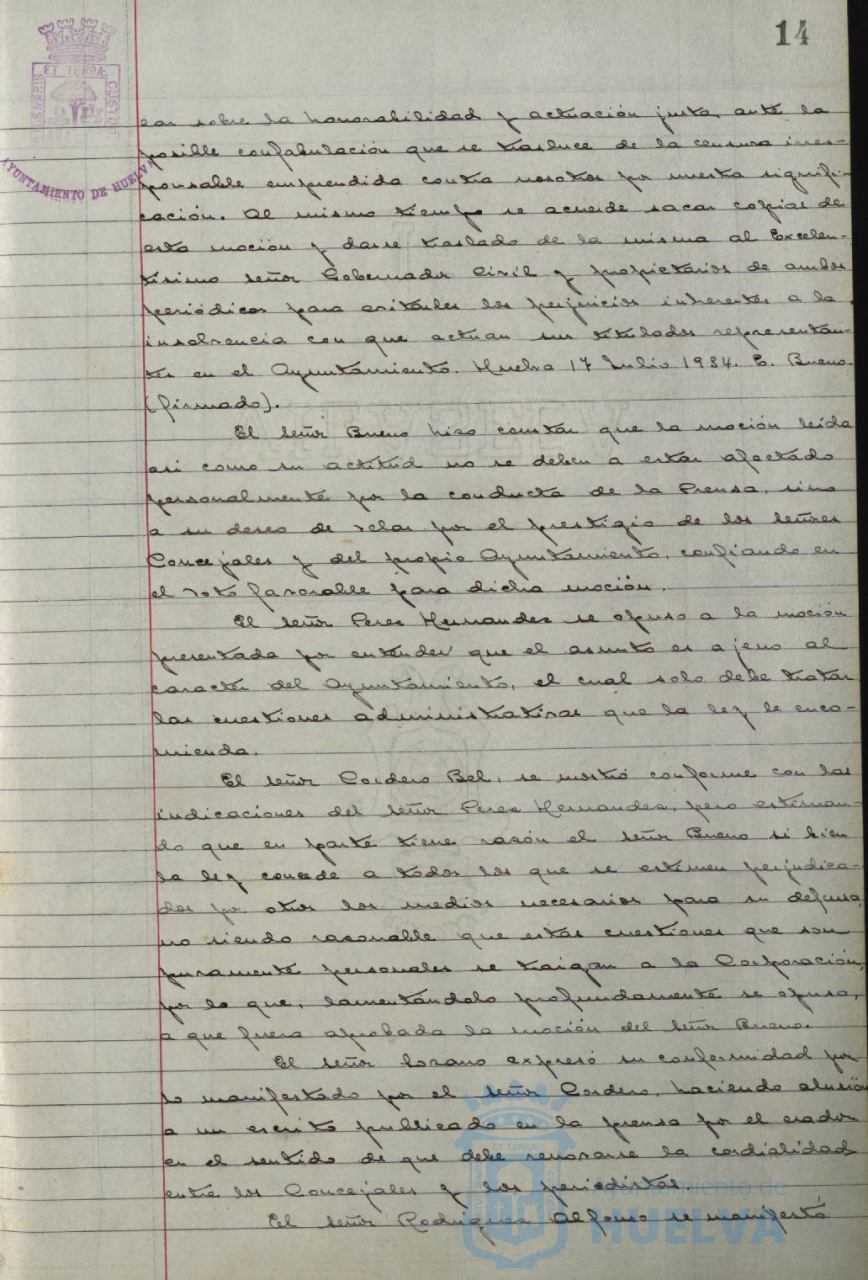 14
ET TERRÆ
CUSTOS
AYUNTAMIENTO DE HUELVA
ear sobre la honorabilidad y actuación justa, ante la
posible confabulación que se trasluce de la censura irres-
ponsable emprendida contra nosotros por nuestra signifi-
cación. Al mismo tiempo se acuerde sacar copias de
esta moción y darse traslado de la misma al Excelen-
tisimo señor Gobernador Civil y propietarios de ambos
periódicos para evitarles los perjuicios inherentes a la
insolvencia con que actuan sus titulados representan-
tes en el Ayuntamiento. Huelva 17 Julio 1934. E. Bueno.
(firmado).
El señor Bueno hizo constar que la moción leida
asi como su actitud no se deben a estar afectado
personalmente por la conducta de la Prensa, sino
a su deseo de velar por el prestigio de los señores
Concejales y del propio Ayuntamiento, confiando en
el voto favorable para dicha moción.
El señor Perez Hernandez se opuso a la moción
presentada por entender que el asunto es ajeno al
caracter del Ayuntamiento, el cual solo debe tratar
las cuestiones administrativas que la ley le enco-
mienda.
El señor Cordero Bel, se mostró conforme con las
indicaciones del señor Perez Hernandez, pero estiman-
do que en parte tiene razón el señor Bueno si bien
la ley concede a todos los que se estimen perjudica-
dos por otros los medios necesarios para su defensa,
no siendo razonable que estas cuestiones que son
puramente personales se traigan a la Corporación,
por lo que, lamentándolo profundamente se opuso,
a que fuera aprobada la moción del señor Bueno.
El señor Lozano expresó su conformidad por
lo manifestado por el señor Cordero, haciendo alusión
a un escrito publicado en la prensa por el orador
en el sentido de que debe renovarse la cordialidad
entre los Concejales y los periodistas.
El señor Rodriguez Alfonso se manifestó
Ayuntamiento de
HUELVA